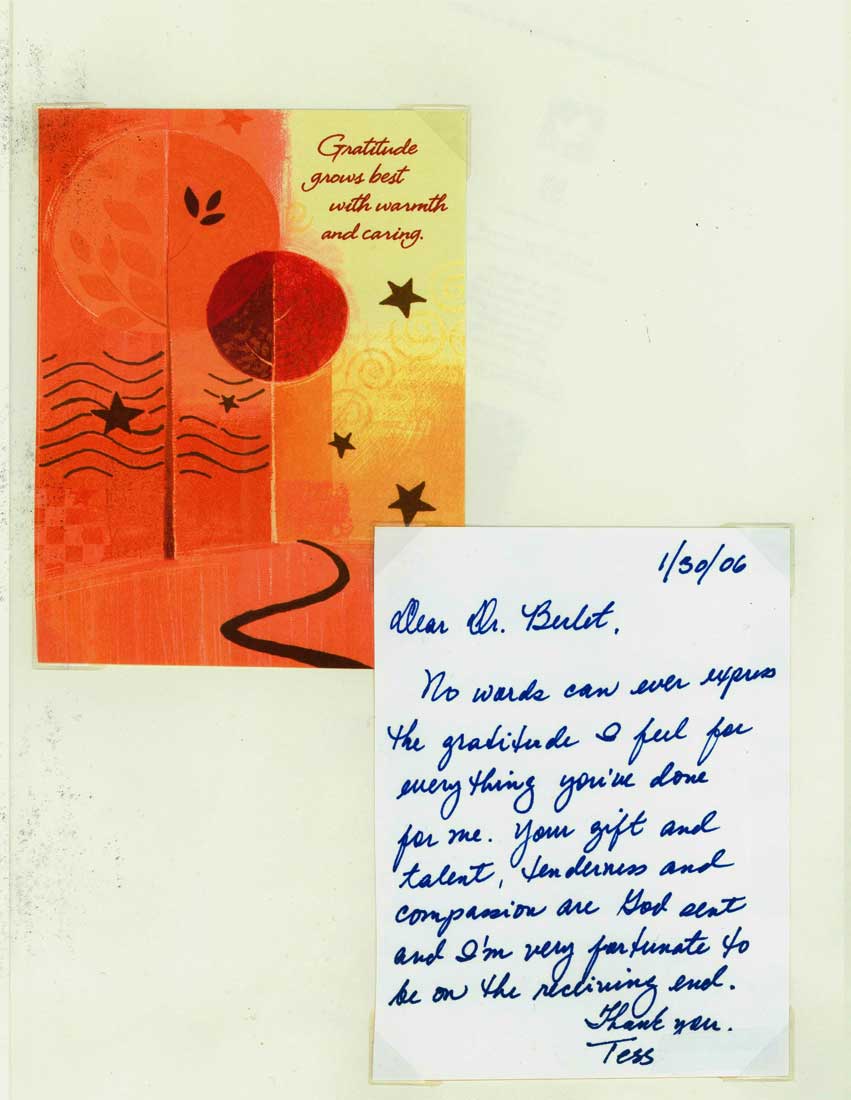 Gratitude
grows best
with warmth
and caring.
1/30/06
Dear Dr. Berlet,
No words can ever express
the gratitude I feel for
everything you've done
for me. Your gift and
talent, tenderness and
compassion are God sent
and I'm very fortunate to
be on the receiving end.
Thank you.
Tess